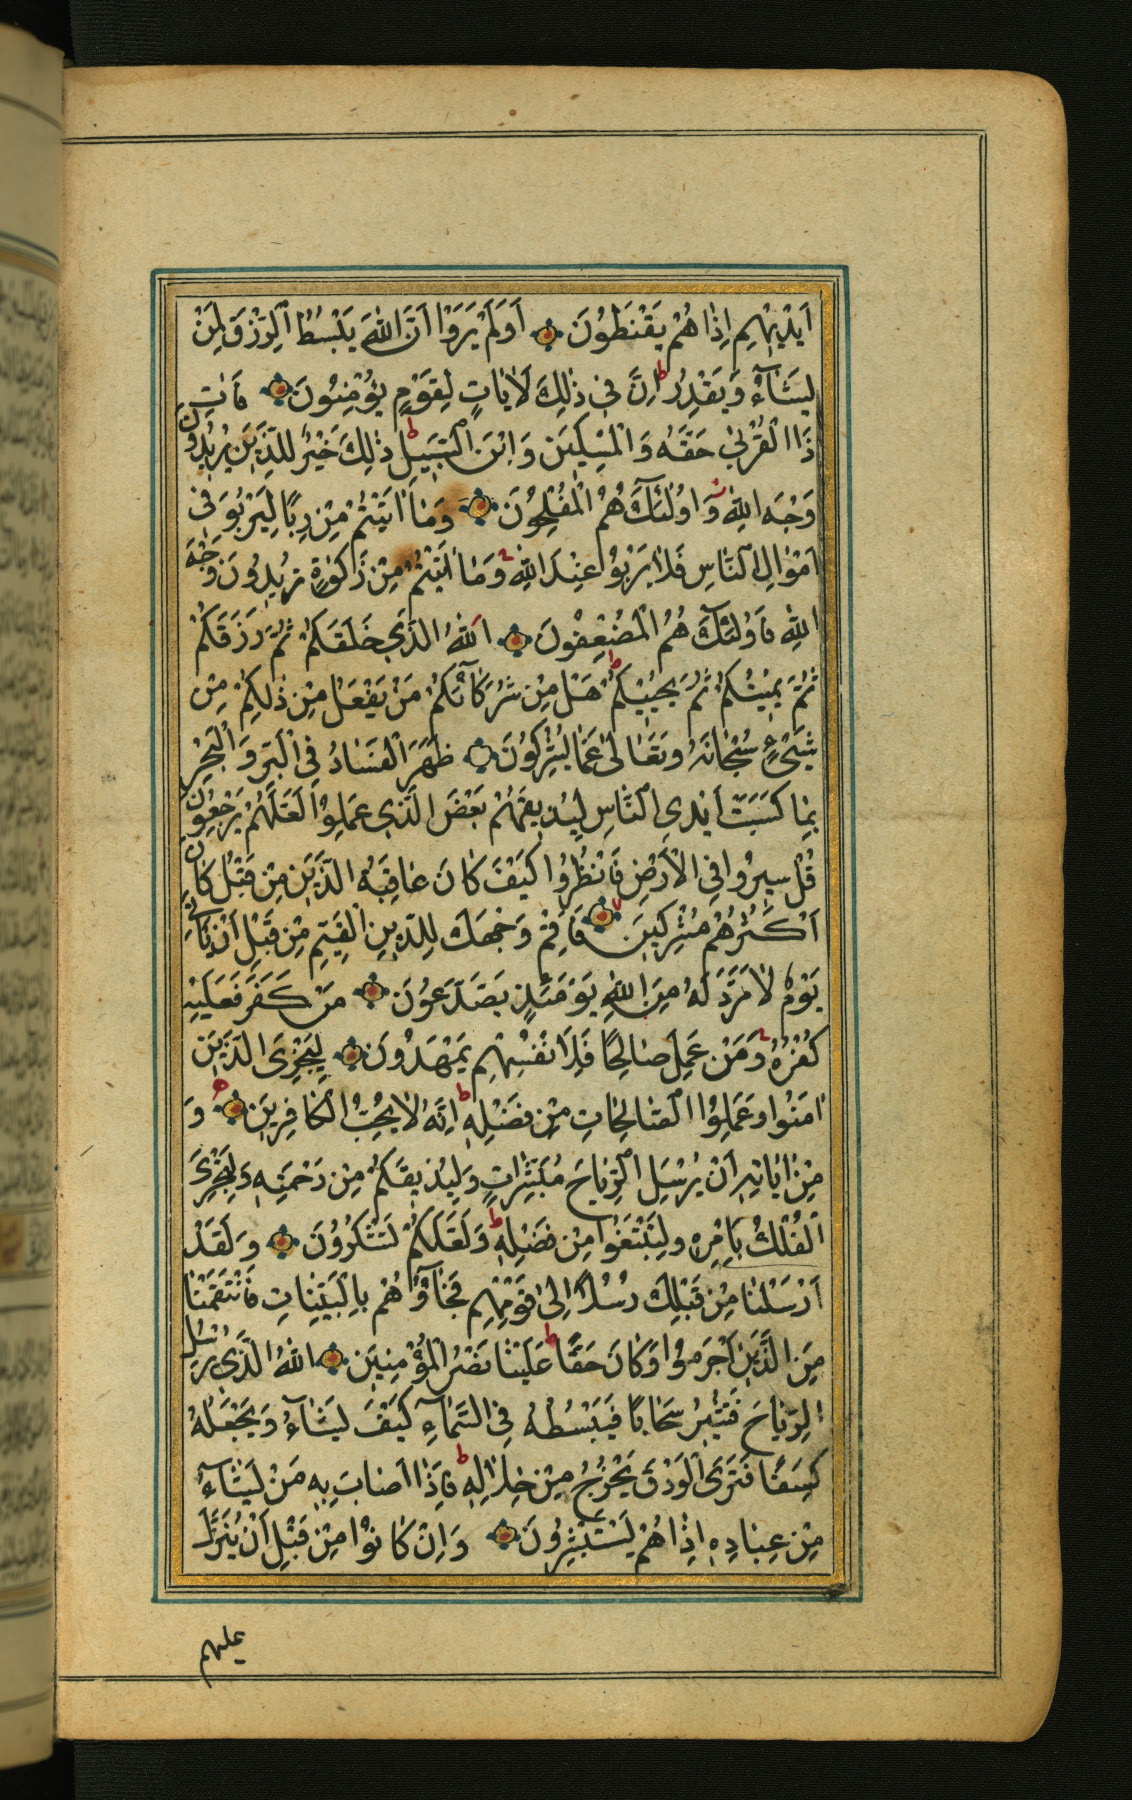 اَيْدِيهِمْ اِذَا هُمْ يَقْنَطُونَ اَوَلَمْ يَرَوْا اَنَّ اللّٰهَ يَبْسُطُ الرِّزْقَ لِمَنْ
يَشَآءُ وَيَقْدِرُ ط اِنَّ فِي ذٰلِكَ لَاٰيَاتٍ لِقَوْمٍ يُؤْمِنُونَ فَاٰتِ
ذَا الْقُرْبٰى حَقَّهُ وَالْمِسْكِينَ وَابْنَ السَّبِيلِ ط ذٰلِكَ خَيْرٌ لِلَّذِينَ يُرِيدُونَ
وَجْهَ اللّٰهِ وَاُولٰئِكَ هُمُ الْمُفْلِحُونَ وَمَا اٰتَيْتُمْ مِنْ رِبًا لِيَرْبُوَ فِي
اَمْوَالِ النَّاسِ فَلَا يَرْبُوا عِنْدَ اللّٰهِ وَمَا اٰتَيْتُمْ مِنْ زَكٰوةٍ تُرِيدُونَ وَجْهَ
اللّٰهِ فَاُولٰئِكَ هُمُ الْمُضْعِفُونَ اَللّٰهُ الَّذِي خَلَقَكُمْ ثُمَّ رَزَقَكُمْ
ثُمَّ يُمِيتُكُمْ ثُمَّ يُحْيِيكُمْ ط هَلْ مِنْ شُرَكَآئِكُمْ مَنْ يَفْعَلُ مِنْ ذٰلِكُمْ مِنْ
شَيْءٍ سُبْحَانَهُ وَتَعَالٰى عَمَّا يُشْرِكُونَ ظَهَرَ الْفَسَادُ فِي الْبَرِّ وَالْبَحْرِ
بِمَا كَسَبَتْ اَيْدِي النَّاسِ لِيُذِيقَهُمْ بَعْضَ الَّذِي عَمِلُوا لَعَلَّهُمْ يَرْجِعُونَ
قُلْ سِيرُوا فِي الْاَرْضِ فَانْظُرُوا كَيْفَ كَانَ عَاقِبَةُ الَّذِينَ مِنْ قَبْلُ كَانَ
اَكْثَرُهُمْ مُشْرِكِينَ فَاَقِمْ وَجْهَكَ لِلدِّينِ الْقَيِّمِ مِنْ قَبْلِ اَنْ يَاْتِيَ
يَوْمٌ لَا مَرَدَّ لَهُ مِنَ اللّٰهِ يَوْمَئِذٍ يَصَّدَّعُونَ مَنْ كَفَرَ فَعَلَيْهِ
كُفْرُهُ وَمَنْ عَمِلَ صَالِحًا فَلِاَنْفُسِهِمْ يَمْهَدُونَ لِيَجْزِيَ الَّذِينَ
اٰمَنُوا وَعَمِلُوا الصَّالِحَاتِ مِنْ فَضْلِهِ ط اِنَّهُ لَا يُحِبُّ الْكَافِرِينَ وَ
مِنْ اٰيَاتِهِ اَنْ يُرْسِلَ الرِّيَاحَ مُبَشِّرَاتٍ وَلِيُذِيقَكُمْ مِنْ رَحْمَتِهِ وَلِتَجْرِيَ
الْفُلْكُ بِاَمْرِهِ وَلِتَبْتَغُوا مِنْ فَضْلِهِ ط وَلَعَلَّكُمْ تَشْكُرُونَ وَلَقَدْ
اَرْسَلْنَا مِنْ قَبْلِكَ رُسُلًا اِلٰى قَوْمِهِمْ فَجَآؤُهُمْ بِالْبَيِّنَاتِ فَانْتَقَمْنَا
مِنَ الَّذِينَ اَجْرَمُوا وَكَانَ حَقًّا ط عَلَيْنَا نَصْرُ الْمُؤْمِنِينَ اَللّٰهُ الَّذِي يُرْسِلُ
الرِّيَاحَ فَتُثِيرُ سَحَابًا فَيَبْسُطُهُ فِي السَّمَآءِ كَيْفَ يَشَآءُ وَيَجْعَلُهُ
كِسَفًا فَتَرَى الْوَدْقَ يَخْرُجُ مِنْ خِلَالِهِ ط فَاِذَا اَصَابَ بِهِ مَنْ يَشَآءُ
مِنْ عِبَادِهِ اِذَا هُمْ يَسْتَبْشِرُونَ وَاِنْ كَانُوا مِنْ قَبْلِ اَنْ يُنَزَّلَ
عليهم